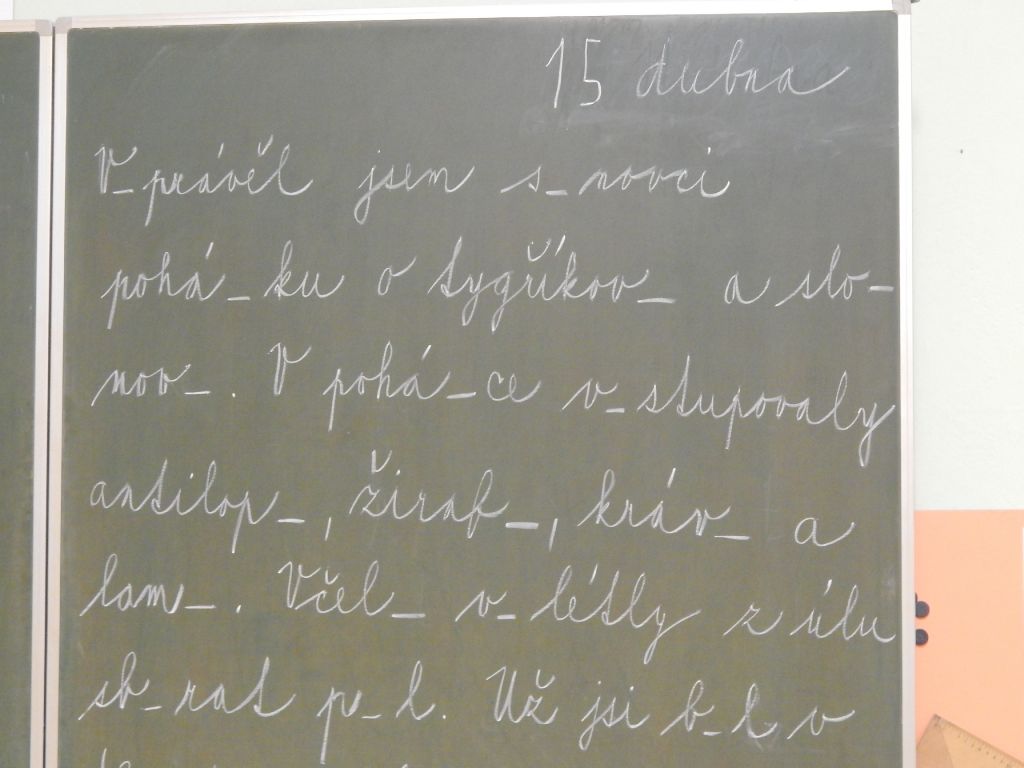 15 dubna
V_právěl jsem s_novci
pohá_ku o tygříkov_ a slo-
nov_. V pohá_ce v_stupovaly
antilop_, žiraf_, kráv_ a
lam_. Včel_ v_létly z úlu
sb_rat p_l. Už jsi b_l v